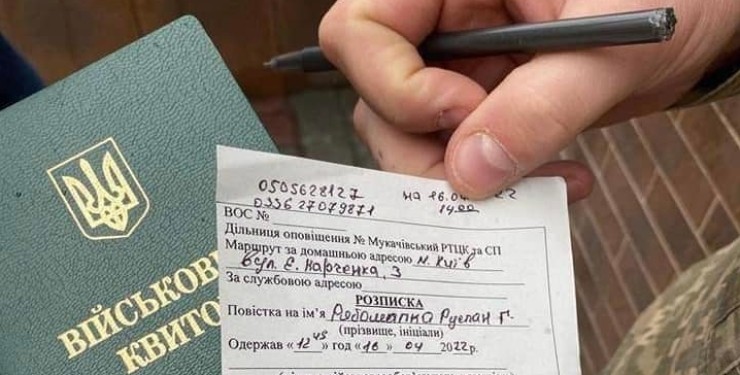 ВІЙСЬКОВ
КВИТО
0505628127 на 16.0 22
0336 27079871 14.00
ВОС №
Дільниця оповіщення № Мукачівський РТЦК да СП
Маршрут за домашньою адресою м. Київ
вул. Є. Харченка, 3
За службовою адресою
РОЗПИСКА
Повістка на ім'я Рябошапка Руслан Г.
(прізвище, ініціали)
Одержав «12 45» год «16» 04 2022р.